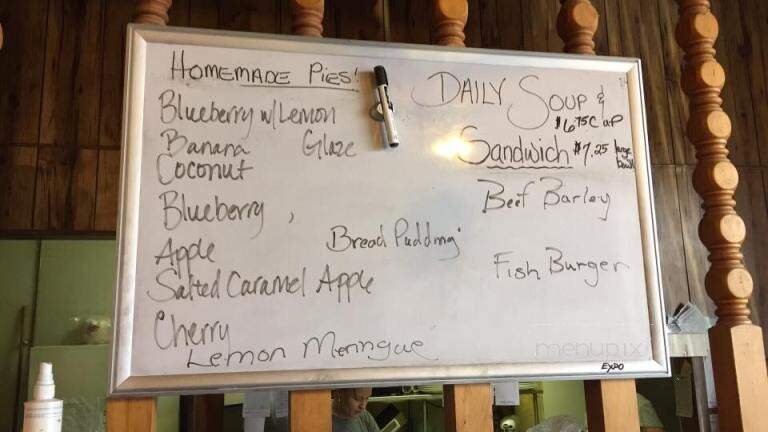 HOMEMADE PIES!
Blueberry w/Lemon
Banana Glaze
Coconut
Blueberry,
Apple
Bread Pudding
Salted Caramel Apple
Cherry
Lemon Meringue
DAILY SOUP &
$6.75 Cup
Sandwich $7.25 large
bowl
Beef Barley
Fish Burger
menupix
EXPO